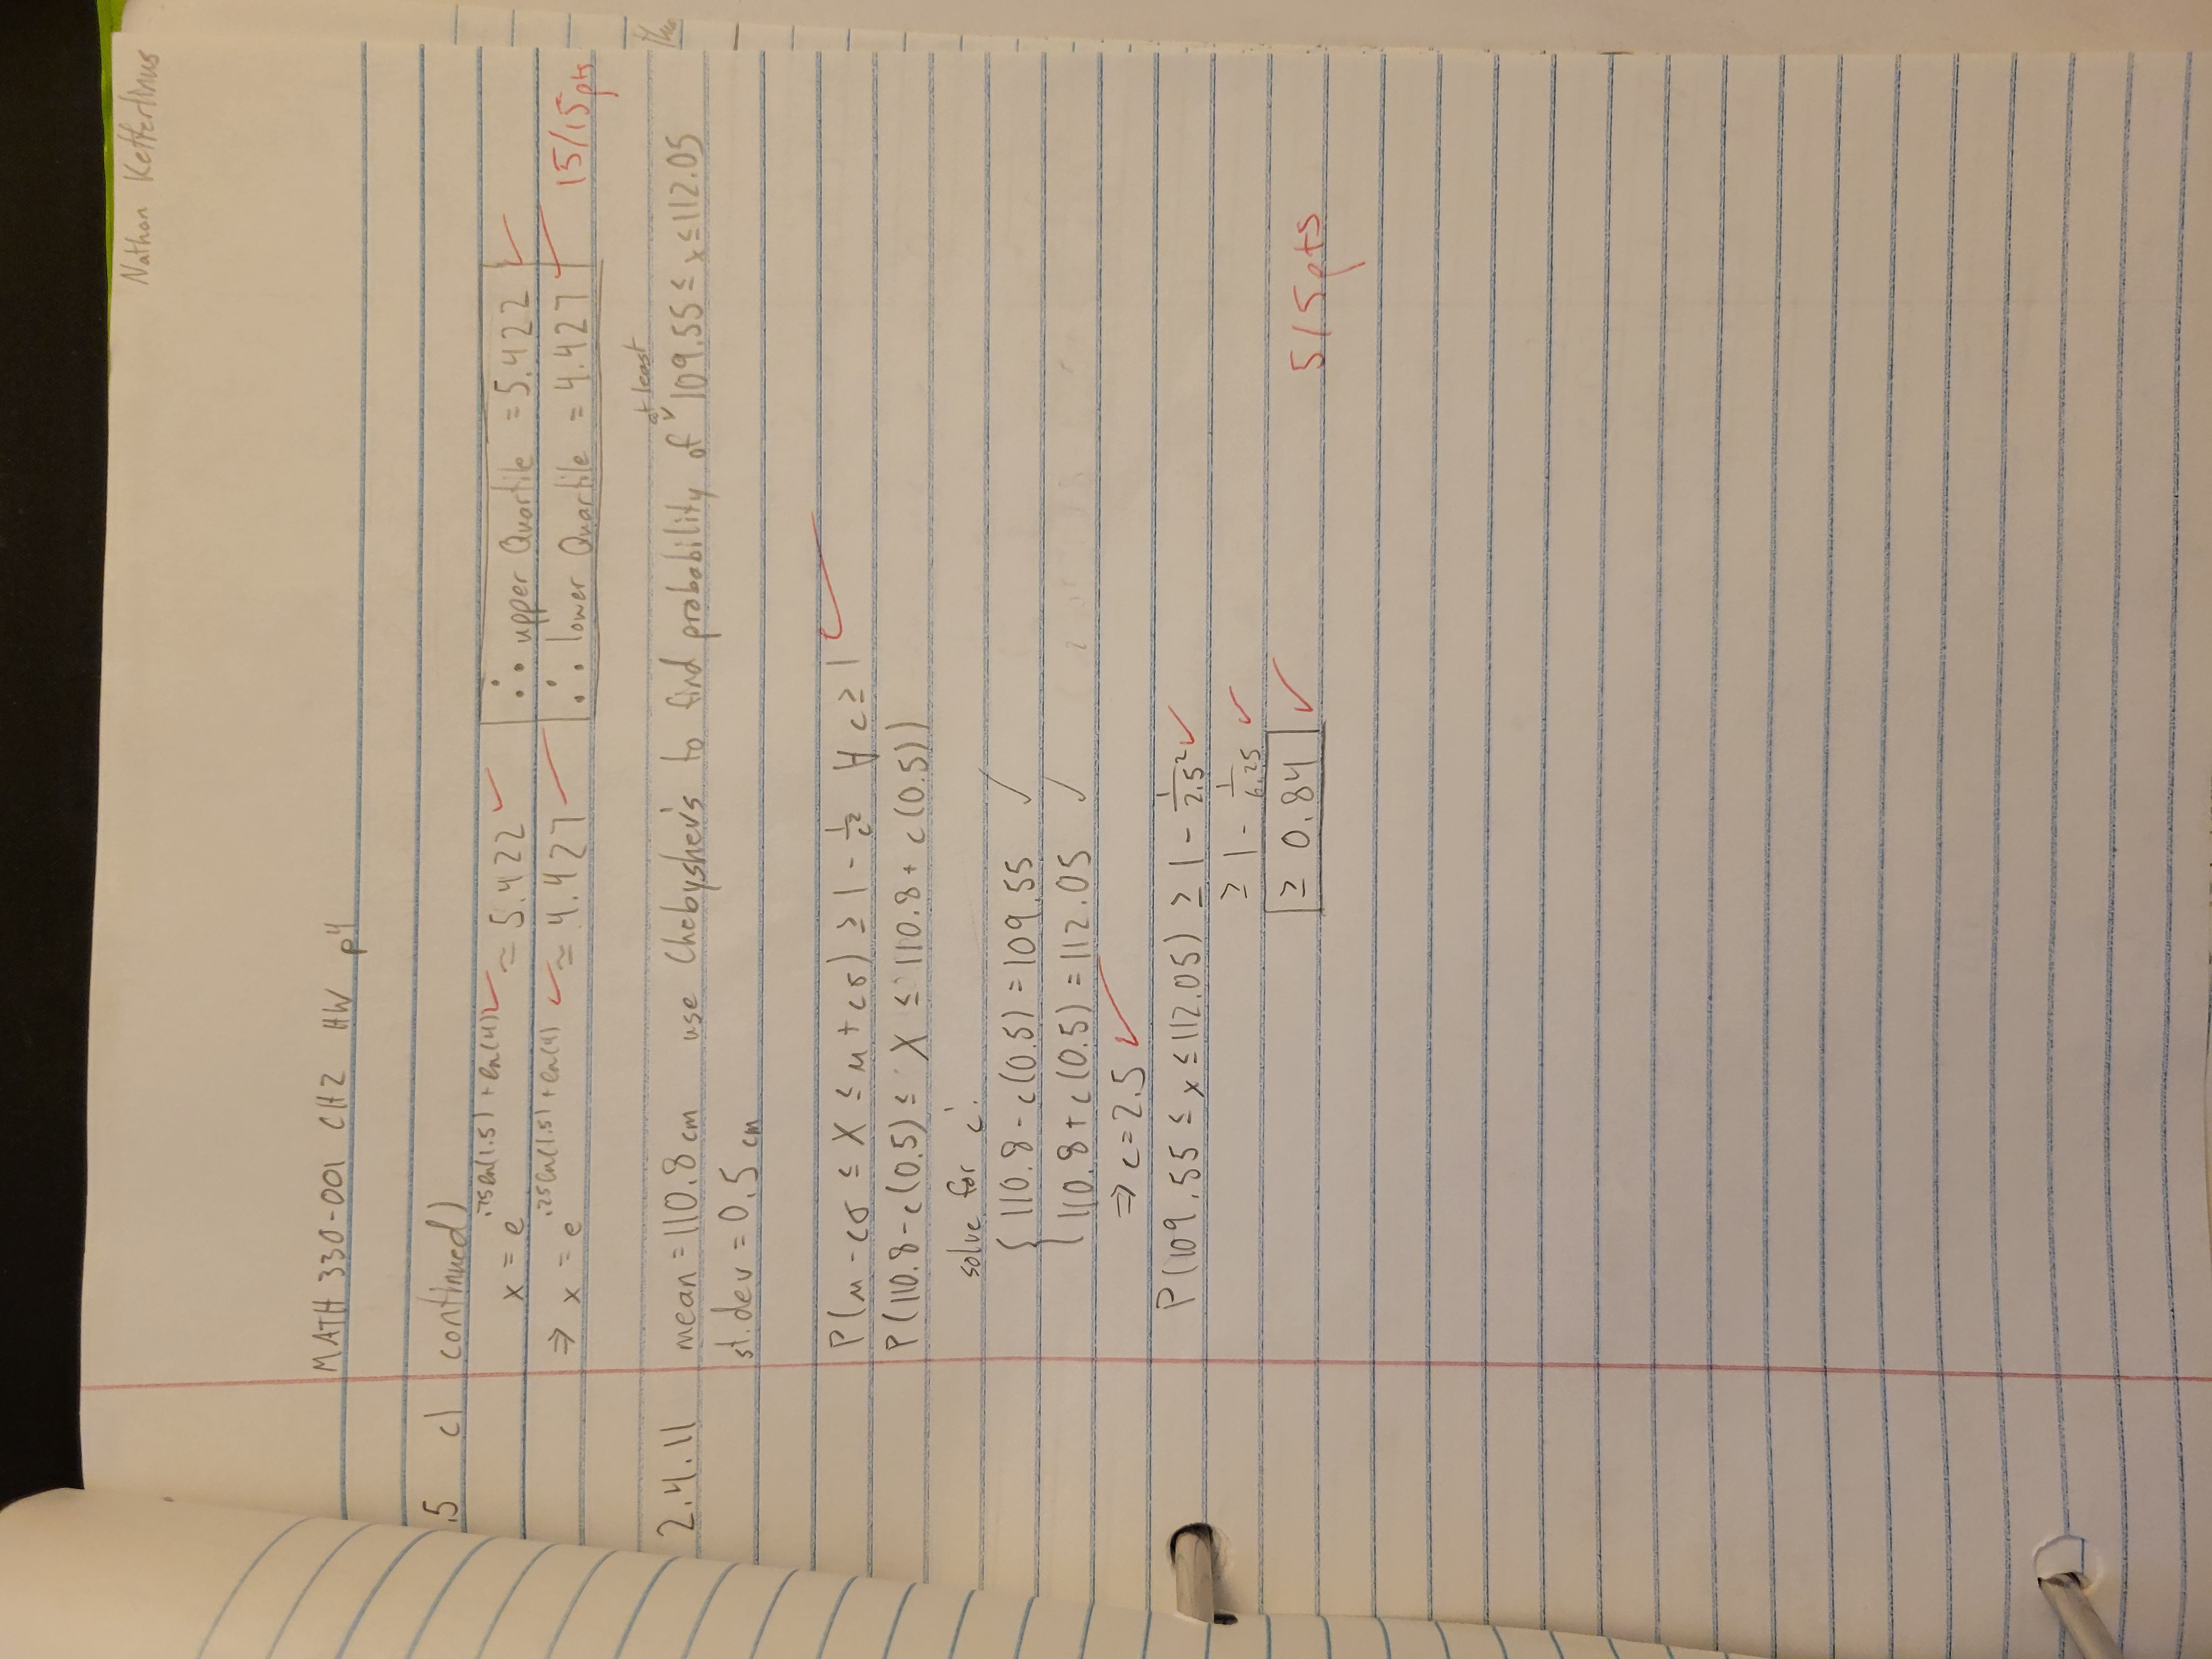 Nathan Ketterlinus
MATH 330-001 CH2 HW p4
.5 c) continued)
x = e^{.75ln(1.5) + ln(4)} ✓ ≈ 5.422 ✓ ∴ upper Quartile = 5.422 ✓
⇒ x = e^{.25ln(1.5) + ln(4)} ✓ ≈ 4.427 ✓ ∴ lower Quartile = 4.427 ✓ 15/15pts
at least
2.4.11 mean = 110.8 cm use Chebyshev's to find probability of ˅ 109.55 ≤ x ≤ 112.05
st. dev = 0.5 cm
P(μ - cσ ≤ X ≤ μ + cσ) ≥ 1 - 1/c² ∀ c ≥ 1 ✓
P(110.8 - c(0.5) ≤ X ≤ 110.8 + c(0.5))
solve for c:
{ 110.8 - c(0.5) = 109.55 ✓
110.8 + c(0.5) = 112.05 ✓
⇒ c = 2.5 ✓
P(109.55 ≤ x ≤ 112.05) ≥ 1 - 1/2.5² ✓
≥ 1 - 1/6.25 ✓
≥ 0.84 ✓ 5/5pts